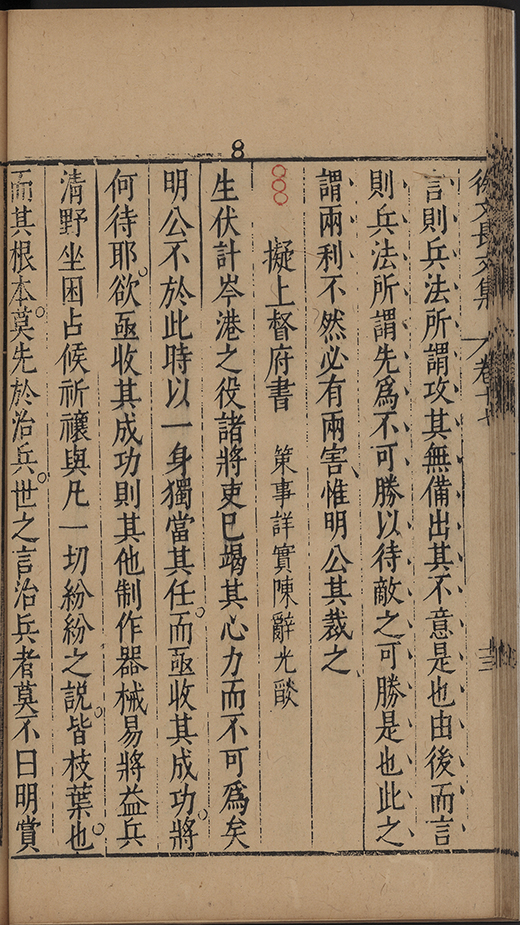 徐文長文集 卷十七 十三
言則兵法所謂攻其無備出其不意是也由後而言
則兵法所謂先為不可勝以待敵之可勝是也此之
謂兩利不然必有兩害惟明公其裁之
擬上督府書 策事詳實陳辭光燄
生伏計岑港之役諸將吏已竭其心力而不可為矣
明公不於此時以一身獨當其任。而亟收其成功。將
何待耶。欲亟收其成功則其他制作器械易將益兵
清野坐困占候祈禳與凡一切紛紛之説。皆枝葉也。
而其根本。莫先於治兵。世之言治兵者莫不曰明賞
8